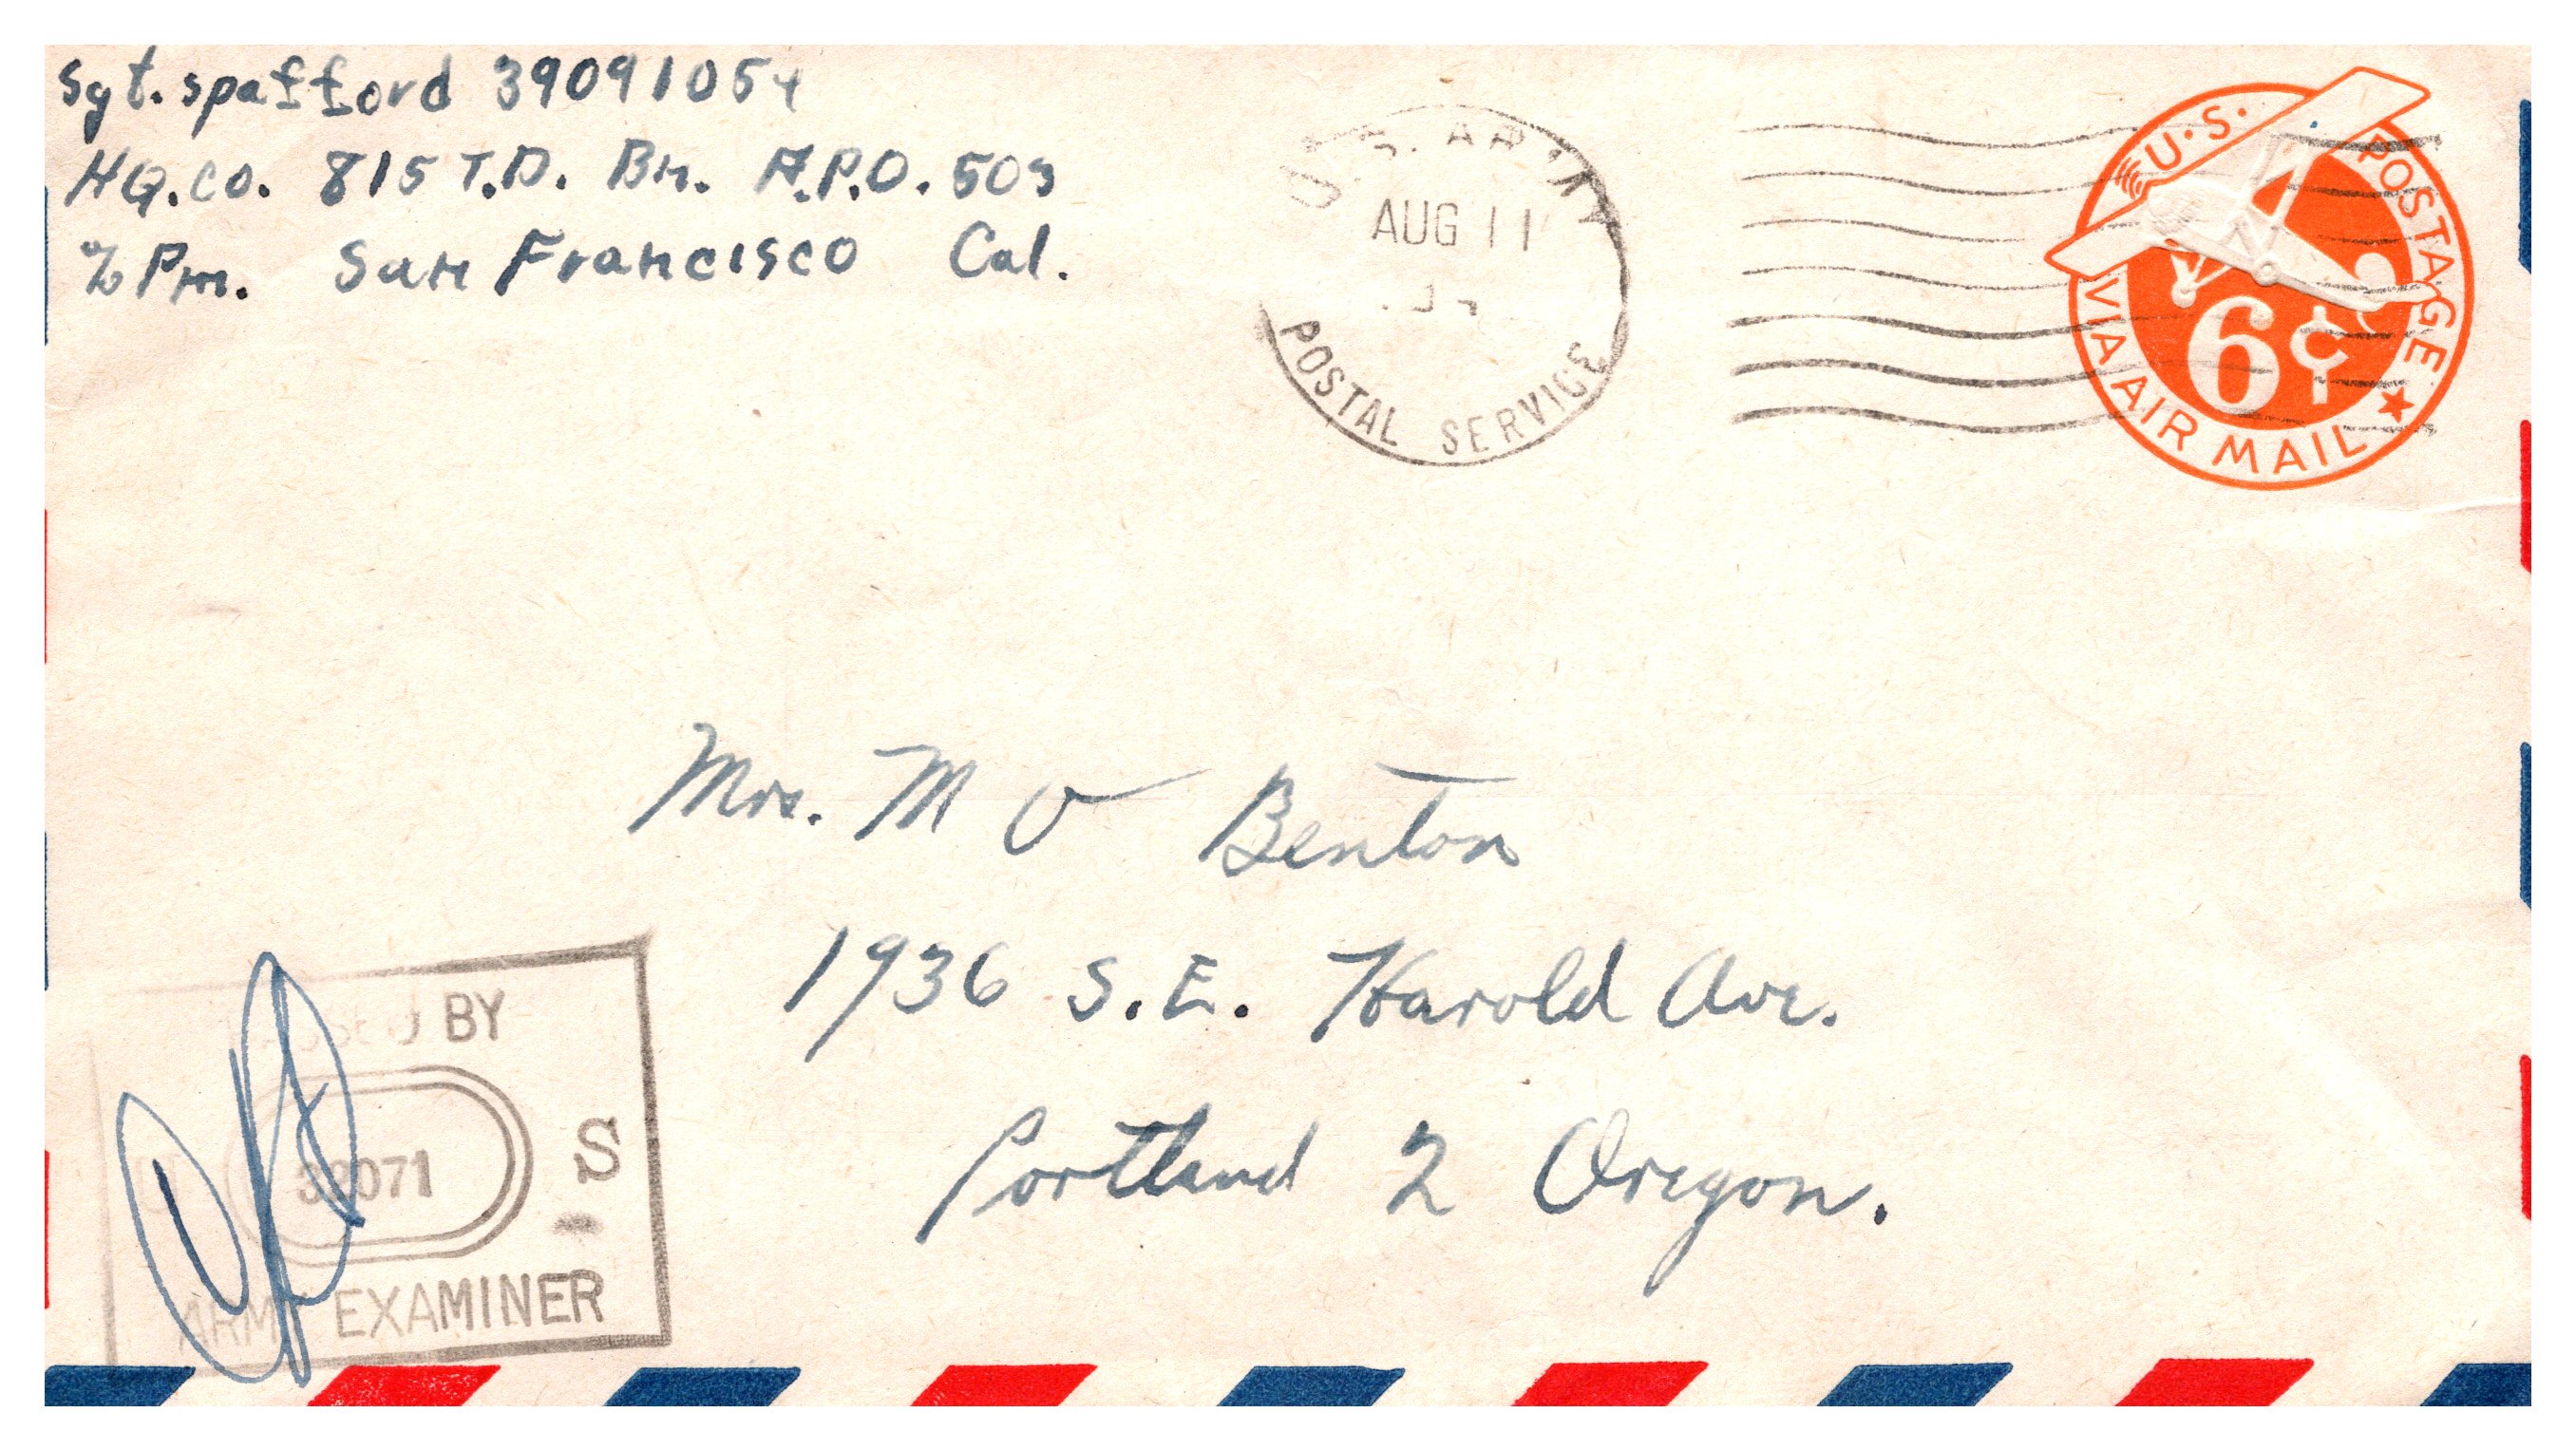 Sgt. Spafford 39091054
HQ. Co. 815 T.D. Bn. A.P.O. 503
% Pm. San Francisco Cal.
U.S. ARMY
AUG 11
POSTAL SERVICE
U.S. POSTAGE
6¢
VIA AIR MAIL
Mrs. M O Benton
1936 S.E. Harold Ave.
Portland 2 Oregon.
BY
S
ARMY EXAMINER